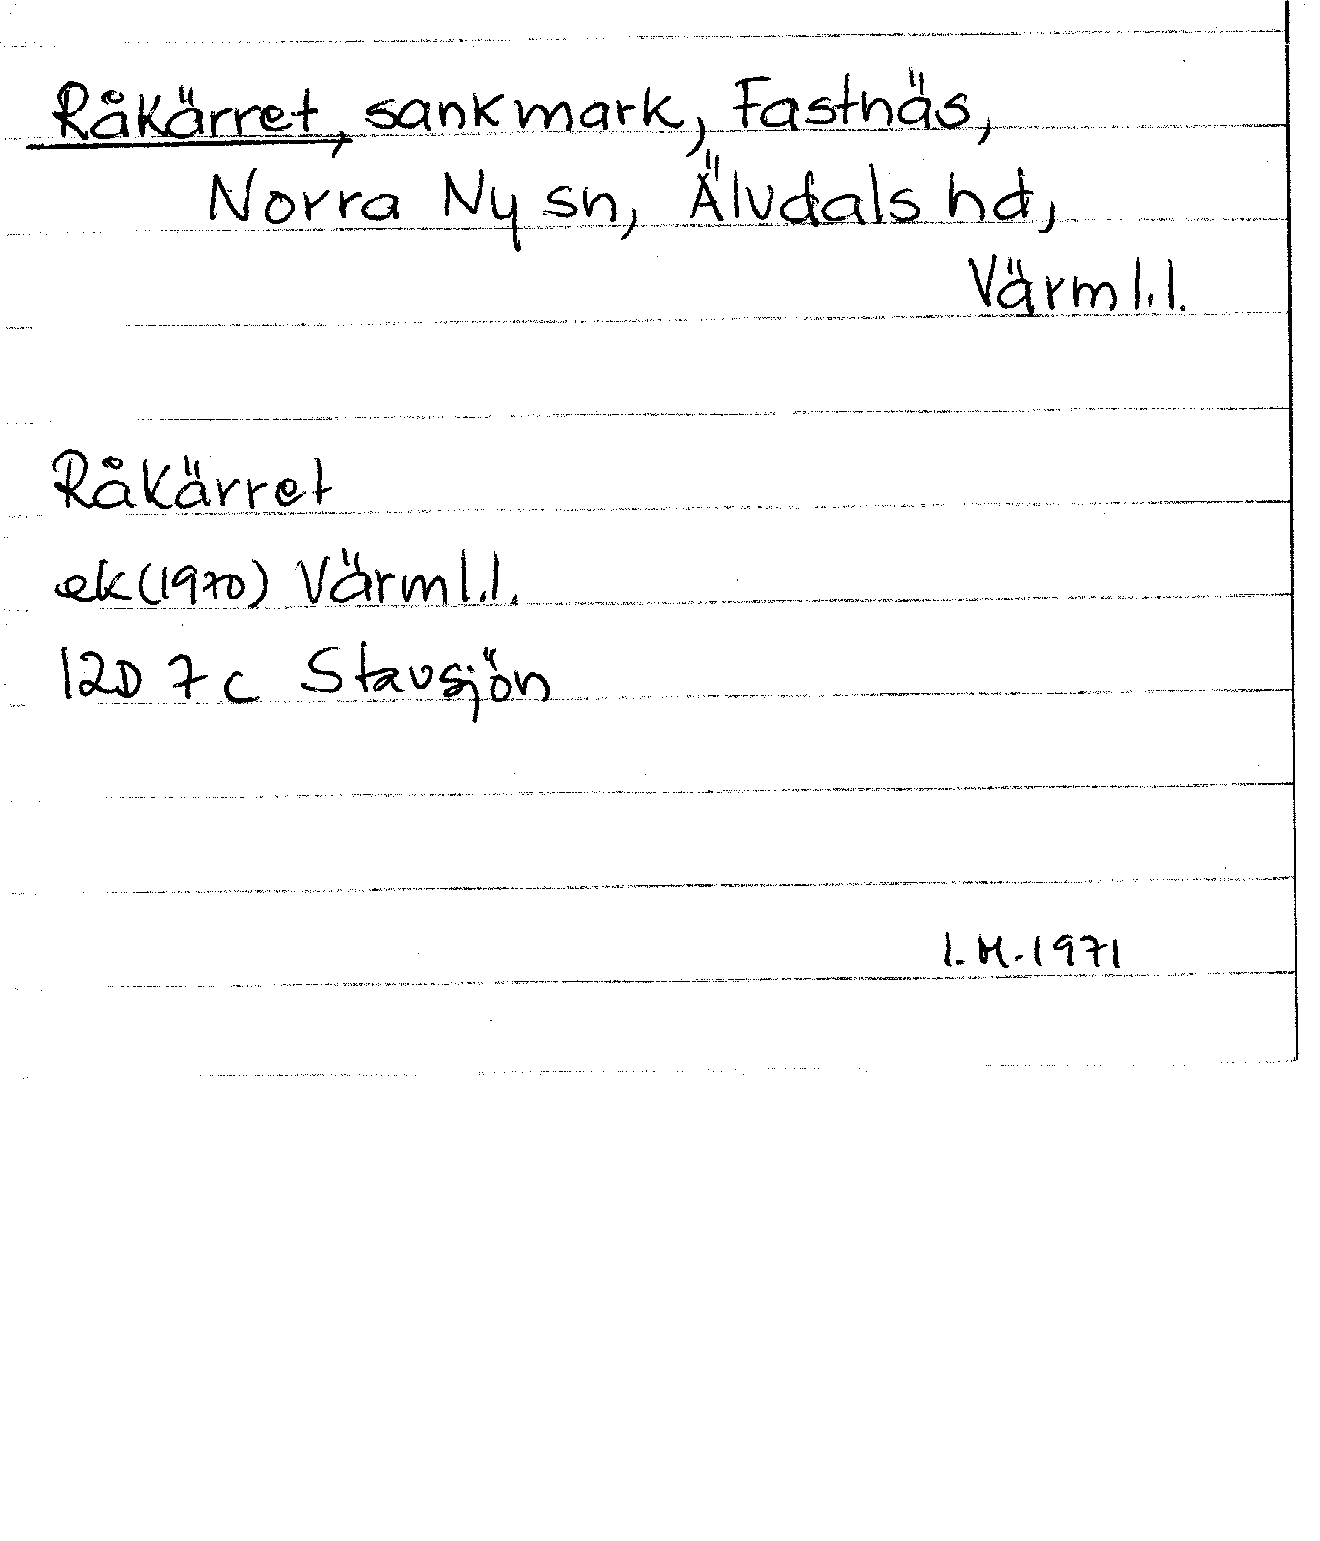 Råkärret, sankmark, Fastnäs,
Norra Ny sn, Älvdals hd,
Värml.l.
Råkärret
ek(1970) Värml.l.
12D 7c Stavsjön
I.M.1971